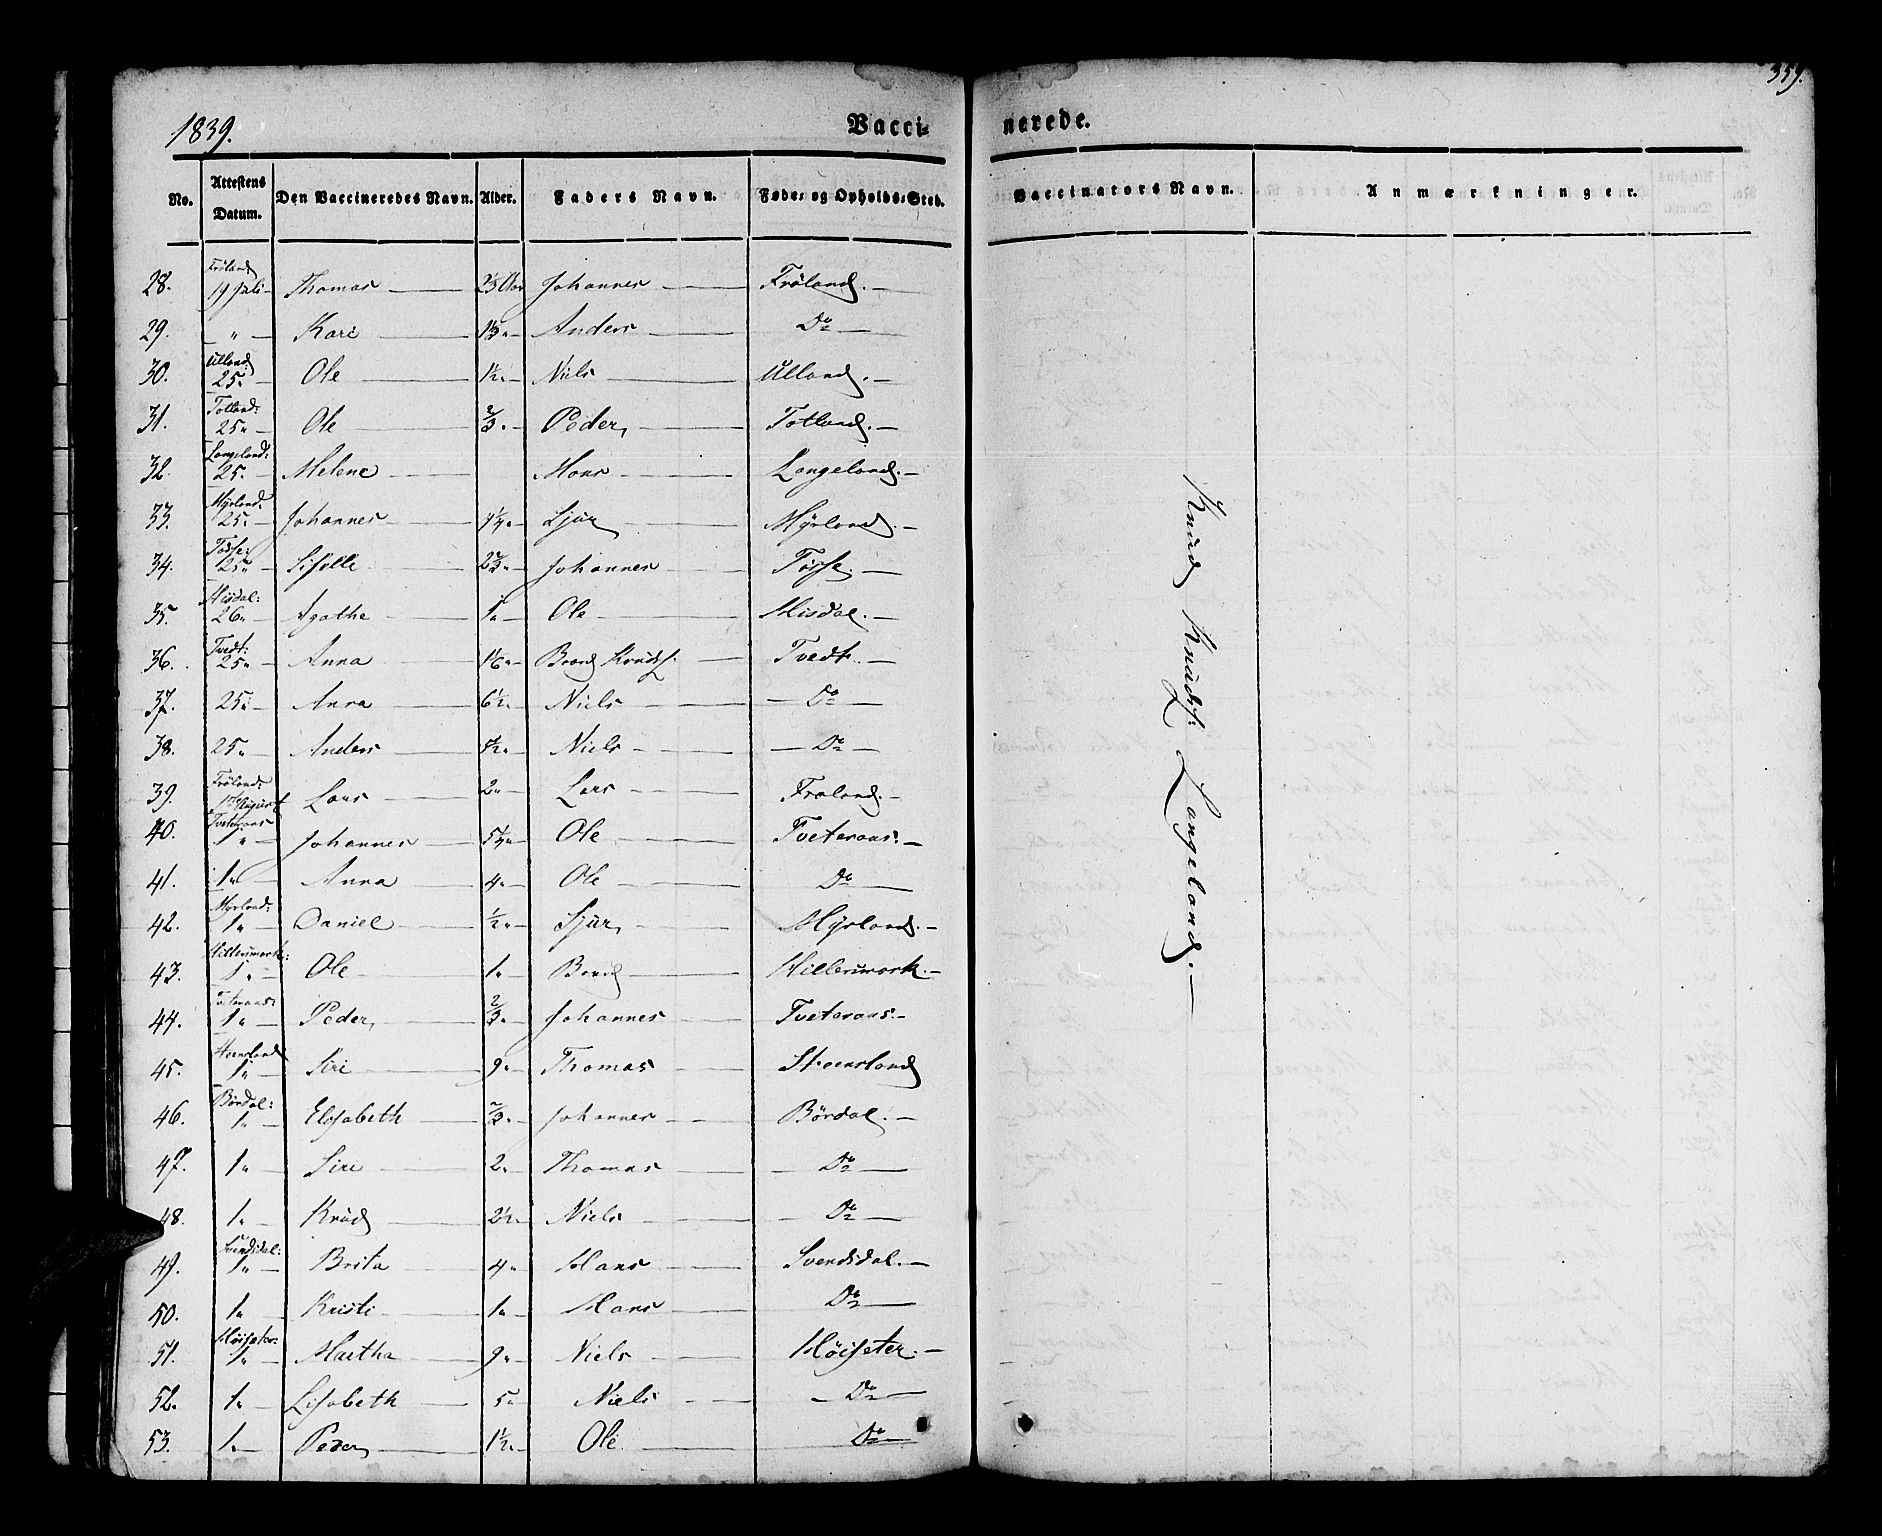 359.
1839. Vacci- nerede.
No. Attestens Datum. Den Vaccineredes Navn. Alder. Faders Navn. Føde- og Opholds-Sted. Vaccinators Navn. Anmærkninger.
28. Fröland 19 Juli Thomas Johannes Fröland.
29. " Kari Anders Do
30. Ulland 25" Ole 1½" Niels Ulland.
31. Totland: 25" Ole ⅔" Peder Totland.
32. Langeland: 25" Helene Mons Langeland.
33. Myrland: 25" Johannes Sjur Myrland.
34. Tösse: 25" Johannes Tösse.
35. Misdal: 26" Agathe 1" Ole Misdal.
36. Tvedt: 25" Anna 1⅙" Brand Knuds. Tvedt.
37. 25" Anna 6½" Niels Do
38. 25" Anders Niels Do
39. Fröland: 1ste August Lars 2" Lars Fröland.
40. Tveteraas 1" Johannes Ole Tveteraas.
41. 1" Anna 4" Ole Do
42. Myrland: 1" Daniel ½" Sjur Myrland.
43. Hillersmark: 1" Ole 1" Hillersmark.
44. Tveteraas: 1" Peder ⅔" Johannes Tveteraas.
45. 1" Siri 9" Thomas
46. Bördal: 1" Elisabeth ⅔" Johannes Bördal.
47. 1" Siri 2" Thomas Do
48. 1" Knud 2½" Niels Do
49. Svendsdal: 1" Brita 4" Hans Svendsdal.
50. 1" Kristi 1" Hans Do
51. Höiseter: 1" Martha 9" Niels Höiseter.
52. 1" Lisabeth 5" Niels Do
53. 1" Peder 1½" Ole Do
Knud Knuds: Langeland.